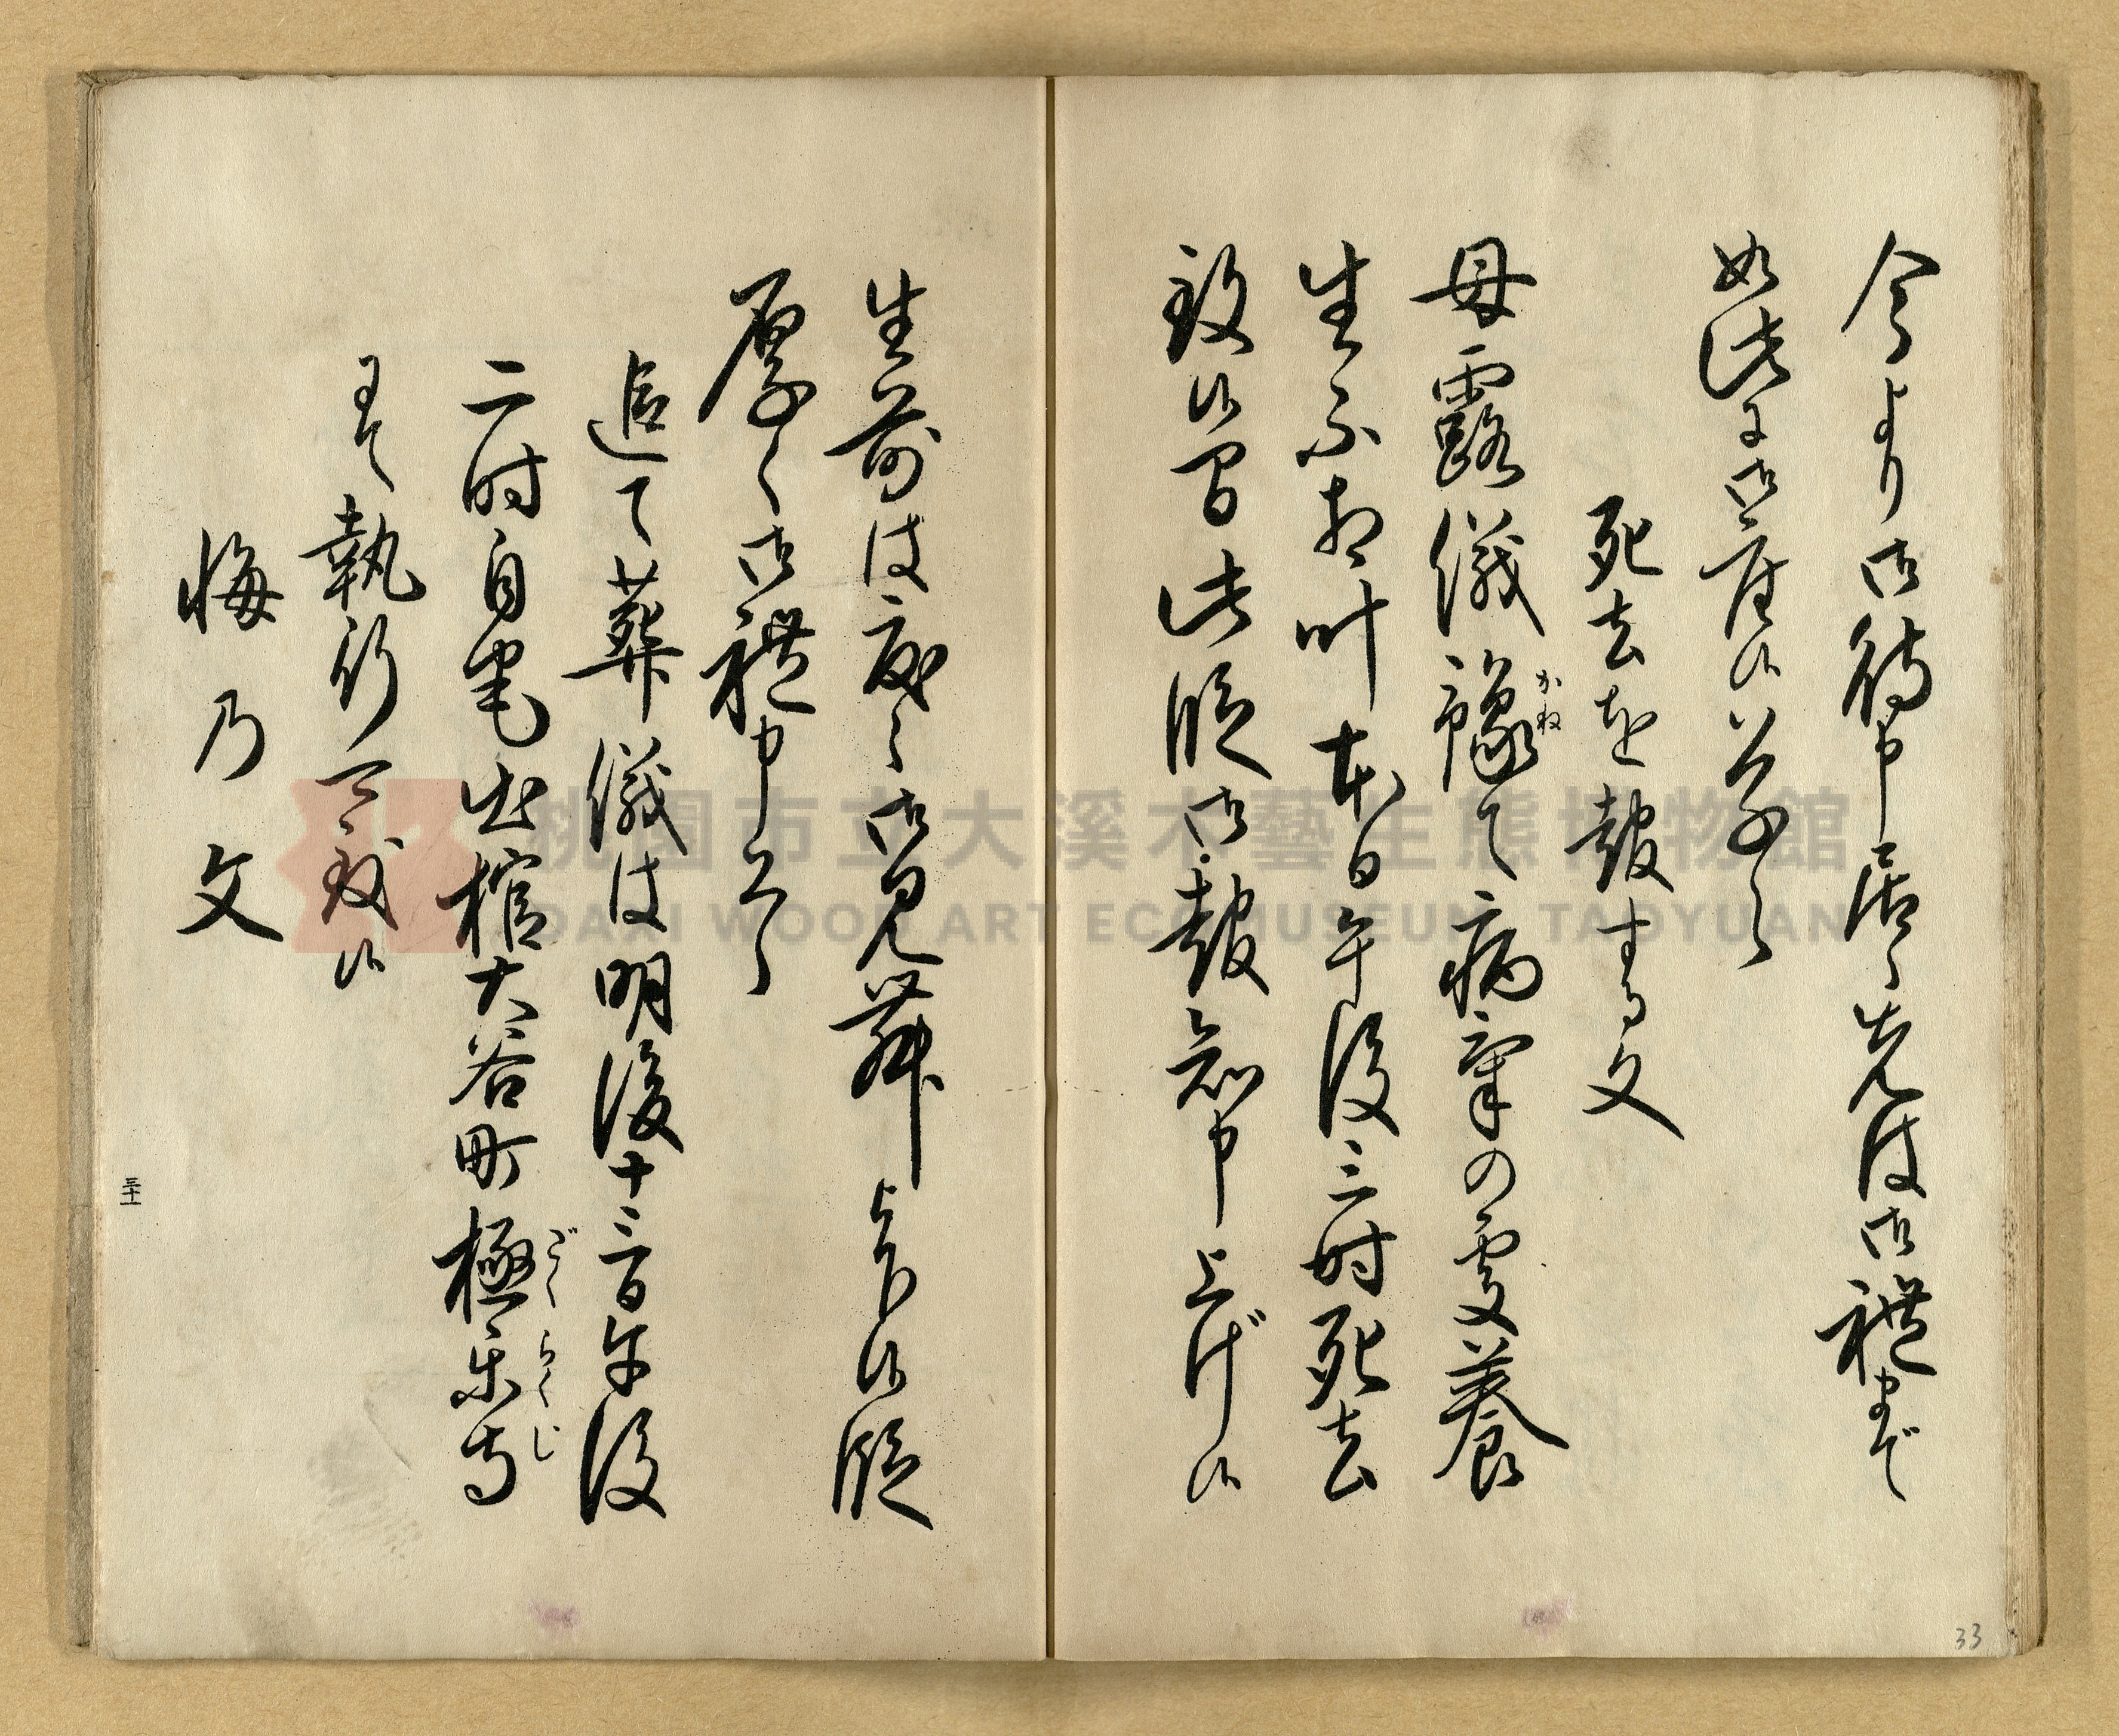 今より御待申居候先は御禮まで
如此に御座候草々
死去を報する文
母露儀豫て病氣の處養
かね
生不相叶本日午後三時死去
致候間此段御報知申上げ候
生前は度々御見舞被下候段
厚く御禮申上候
追て葬儀は明後十三日午後
二時自宅出棺大谷町極樂寺
ごくらくじ
にて執行可致候
悔乃文
三十一
33
桃園市立大溪木藝生態博物館
DAXI WOOD ART ECOMUSEUM, TAOYUAN